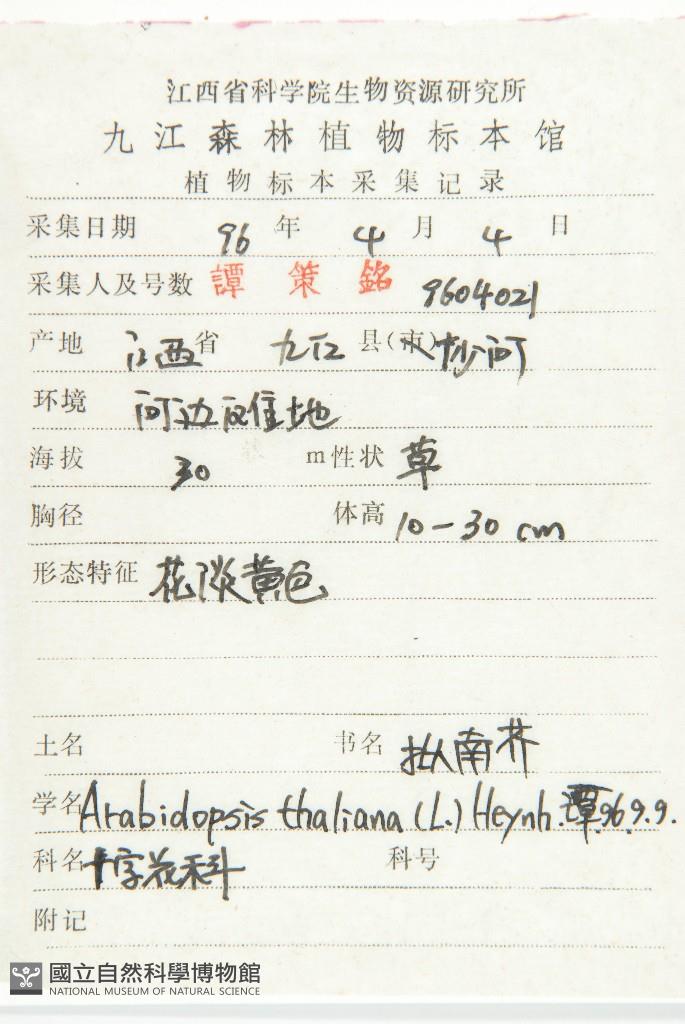 江西省科学院生物资源研究所
九江森林植物标本馆
植物标本采集记录
采集日期 96 年 4 月 4 日
采集人及号数 譚策銘 9604021
产地 江西省 九江 县(市)沙河
环境 河边滩地
海拔 30 m 性状 草
胸径 体高 10-30 cm
形态特征 花淡黄色
土名 书名 拟南芥
学名 Arabidopsis thaliana (L.) Heynh. 譚. 96.9.9.
科名 十字花科 科号
附记
國立自然科學博物館
NATIONAL MUSEUM OF NATURAL SCIENCE